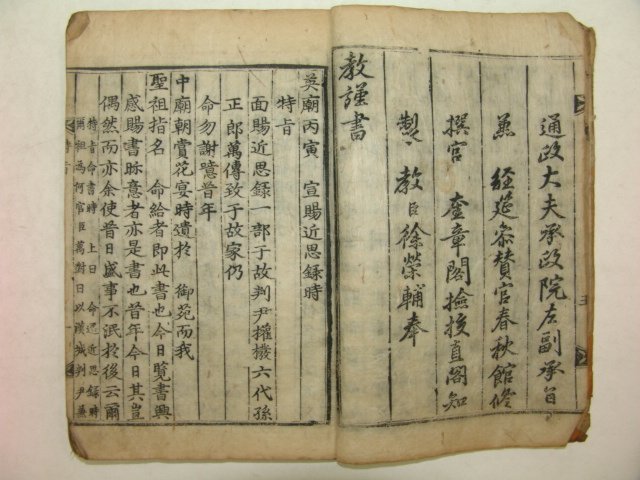 通政大夫承政院左副承旨
兼 經筵參贊官春秋館修
撰官 奎章閣檢校直閣知
製敎臣徐榮輔奉
敎謹書
英廟丙寅 宣賜近思錄時
特旨
面賜近思錄一部于故判尹權橃六代孫
正郎萬傳致于故家仍
命勿謝噫昔年
中廟朝賞花宴時遺於 御苑而我
聖祖指名 命給者即此書也今日覽書興
感賜書眎意者亦是書也昔年今日其豈
偶然而亦余使昔日盛事不泯於後云爾
特旨命書時 上曰 命近思錄時
爾祖爲何官臣萬對曰以漢城判尹兼